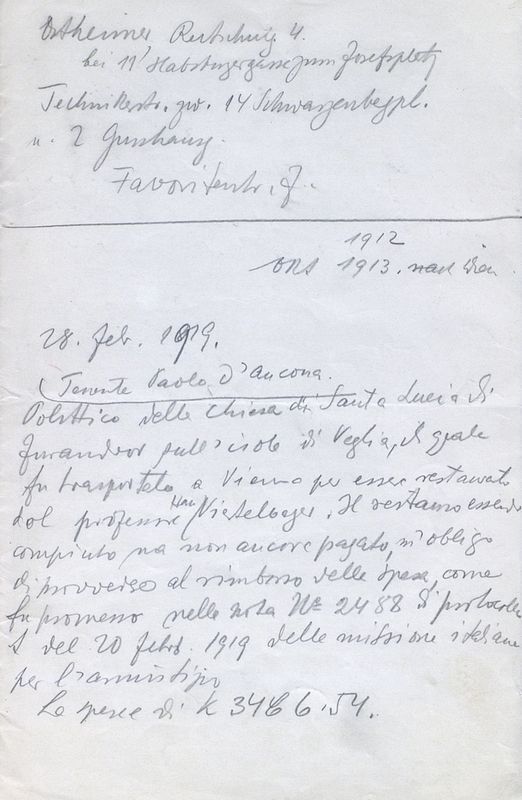 bei 11 Habsburgergasse zum Josefsplatz
Technikerstr. zw. 14 Schwarzenbergpl.
u. 2 Gusshausg.
Favoritenstr. 7.
1912
1913. nach Wien
28. Feb. 1919.
Tenente Paolo D'Ancona.
Polittico della chiesa di Santa Lucia di
Jurandvor sull'isola di Veglia, il quale
fu trasportato a Vienna per esser restaurato
dal professore Herr. Il restauro essendo
compiuto ma non ancora pagato, m'obligo
di provveder al rimborso delle spese, come
fu promesso nella nota No 2488 di protocollo
del 20 febb. 1919 della missione italiana
per l'armistizio
Le spese di K 3466.54.